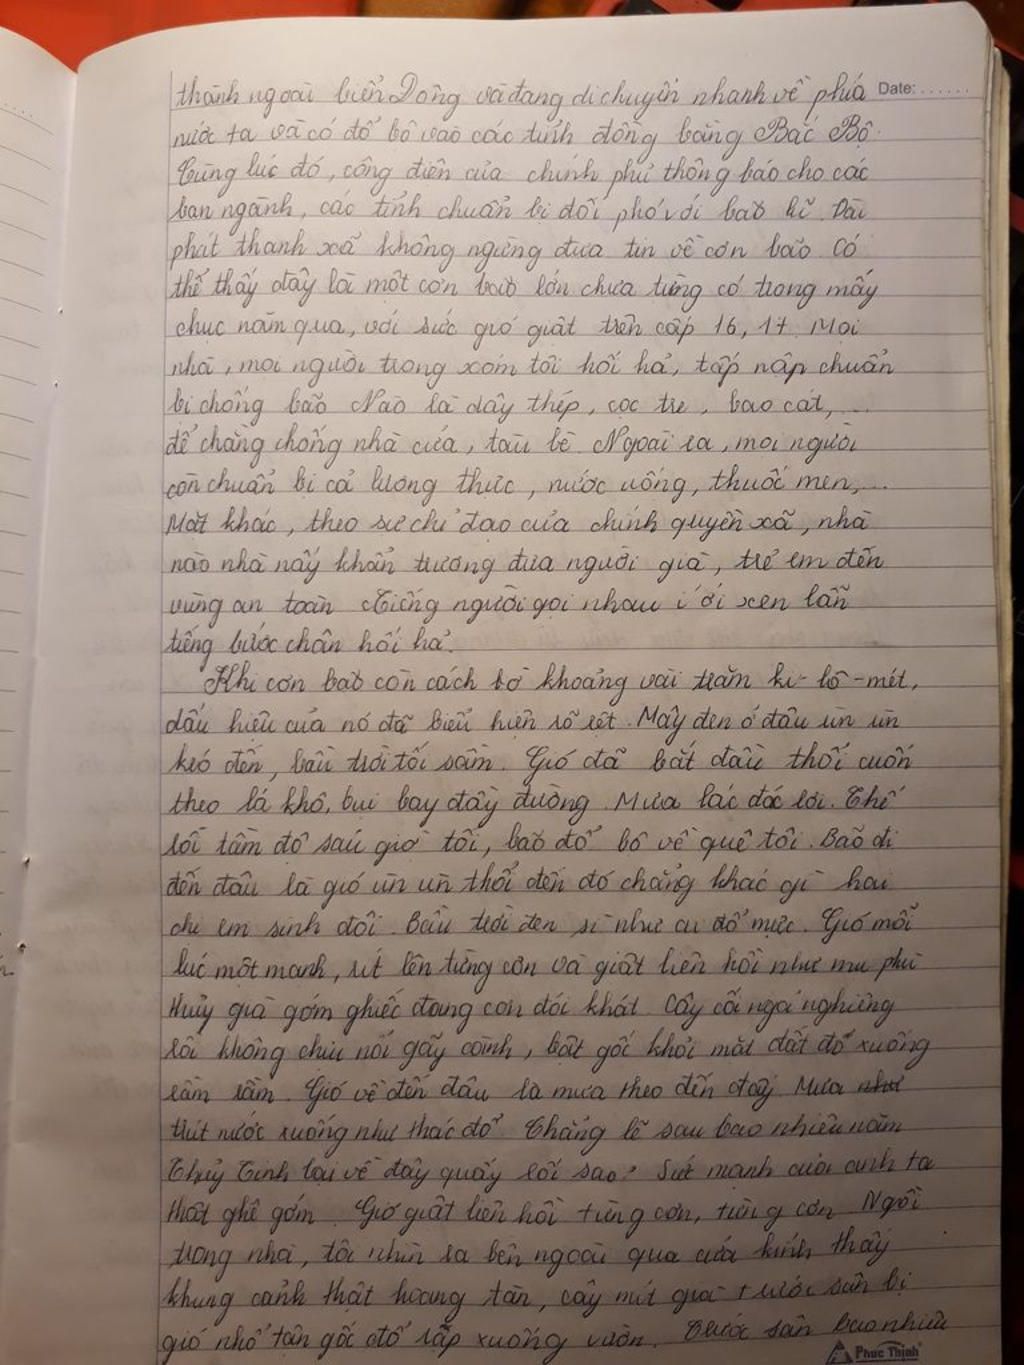 thành ngoài biển Đông và đang di chuyển nhanh về phía Date: ......
nước ta và có đổ bộ vào các tỉnh đồng bằng Bắc Bộ.
Cùng lúc đó, công điện của chính phủ thông báo cho các
ban ngành, các tỉnh chuẩn bị đối phó với bão lũ. Đài
phát thanh xã không ngừng đưa tin về cơn bão. Có
thể thấy đây là một cơn bão lớn chưa từng có trong mấy
chục năm qua, với sức gió giật trên cấp 16, 17. Mọi
nhà, mọi người trong xóm tôi hối hả, tấp nập chuẩn
bị chống bão. Nào là dây thép, cọc tre, bao cát,...
để chằng chống nhà cửa, tàu bè. Ngoài ra, mọi người
còn chuẩn bị cả lương thực, nước uống, thuốc men,...
Mặt khác, theo sự chỉ đạo của chính quyền xã, nhà
nào nhà nấy khẩn trương đưa người già, trẻ em đến
vùng an toàn. Tiếng người gọi nhau í ới xen lẫn
tiếng bước chân hối hả.
Khi cơn bão còn cách bờ khoảng vài trăm ki-lô-mét,
dấu hiệu của nó đã biểu hiện rõ rệt. Mây đen ở đâu ùn ùn
kéo đến, bầu trời tối sầm. Gió đã bắt đầu thổi cuốn
theo lá khô, bụi bay đầy đường. Mưa lác đác rơi. Thế
rồi tầm độ sáu giờ tối, bão đổ bộ về quê tôi. Bão đi
đến đâu là gió ùn ùn thổi đến đó chẳng khác gì hai
chị em sinh đôi. Bầu trời đen sì như ai đổ mực. Gió mỗi
lúc một mạnh, rít lên từng cơn và giật liên hồi như mụ phù
thủy già gớm ghiếc đang cơn đói khát. Cây cối ngả nghiêng
rồi không chịu nổi gãy cành, bật gốc khỏi mặt đất đổ xuống
rầm rầm. Gió về đến đâu là mưa theo đến đấy. Mưa như
trút nước xuống như thác đổ. Chẳng lẽ sau bao nhiêu năm
Thủy Tinh lại về đây quấy rối sao? Sức mạnh của anh ta
thật ghê gớm. Gió giật liên hồi từng cơn, từng cơn. Ngồi
trong nhà, tôi nhìn ra bên ngoài qua cửa kính thấy
khung cảnh thật hoang tàn, cây mít già trước sân bị
gió nhổ tận gốc đổ sập xuống vườn. Trước sân bao nhiêu
Phuc Thinh